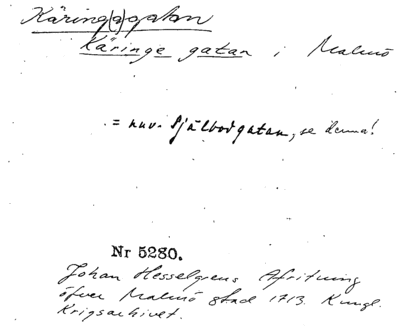 Käring(a)gatan
Käringe gatan i Malmö
= nuv. Själbodgatan, se denna!
Nr 5280.
Johan Hesselgrens Afritning
öfver Malmö stad 1713. Kungl.
Krigsarchivet.